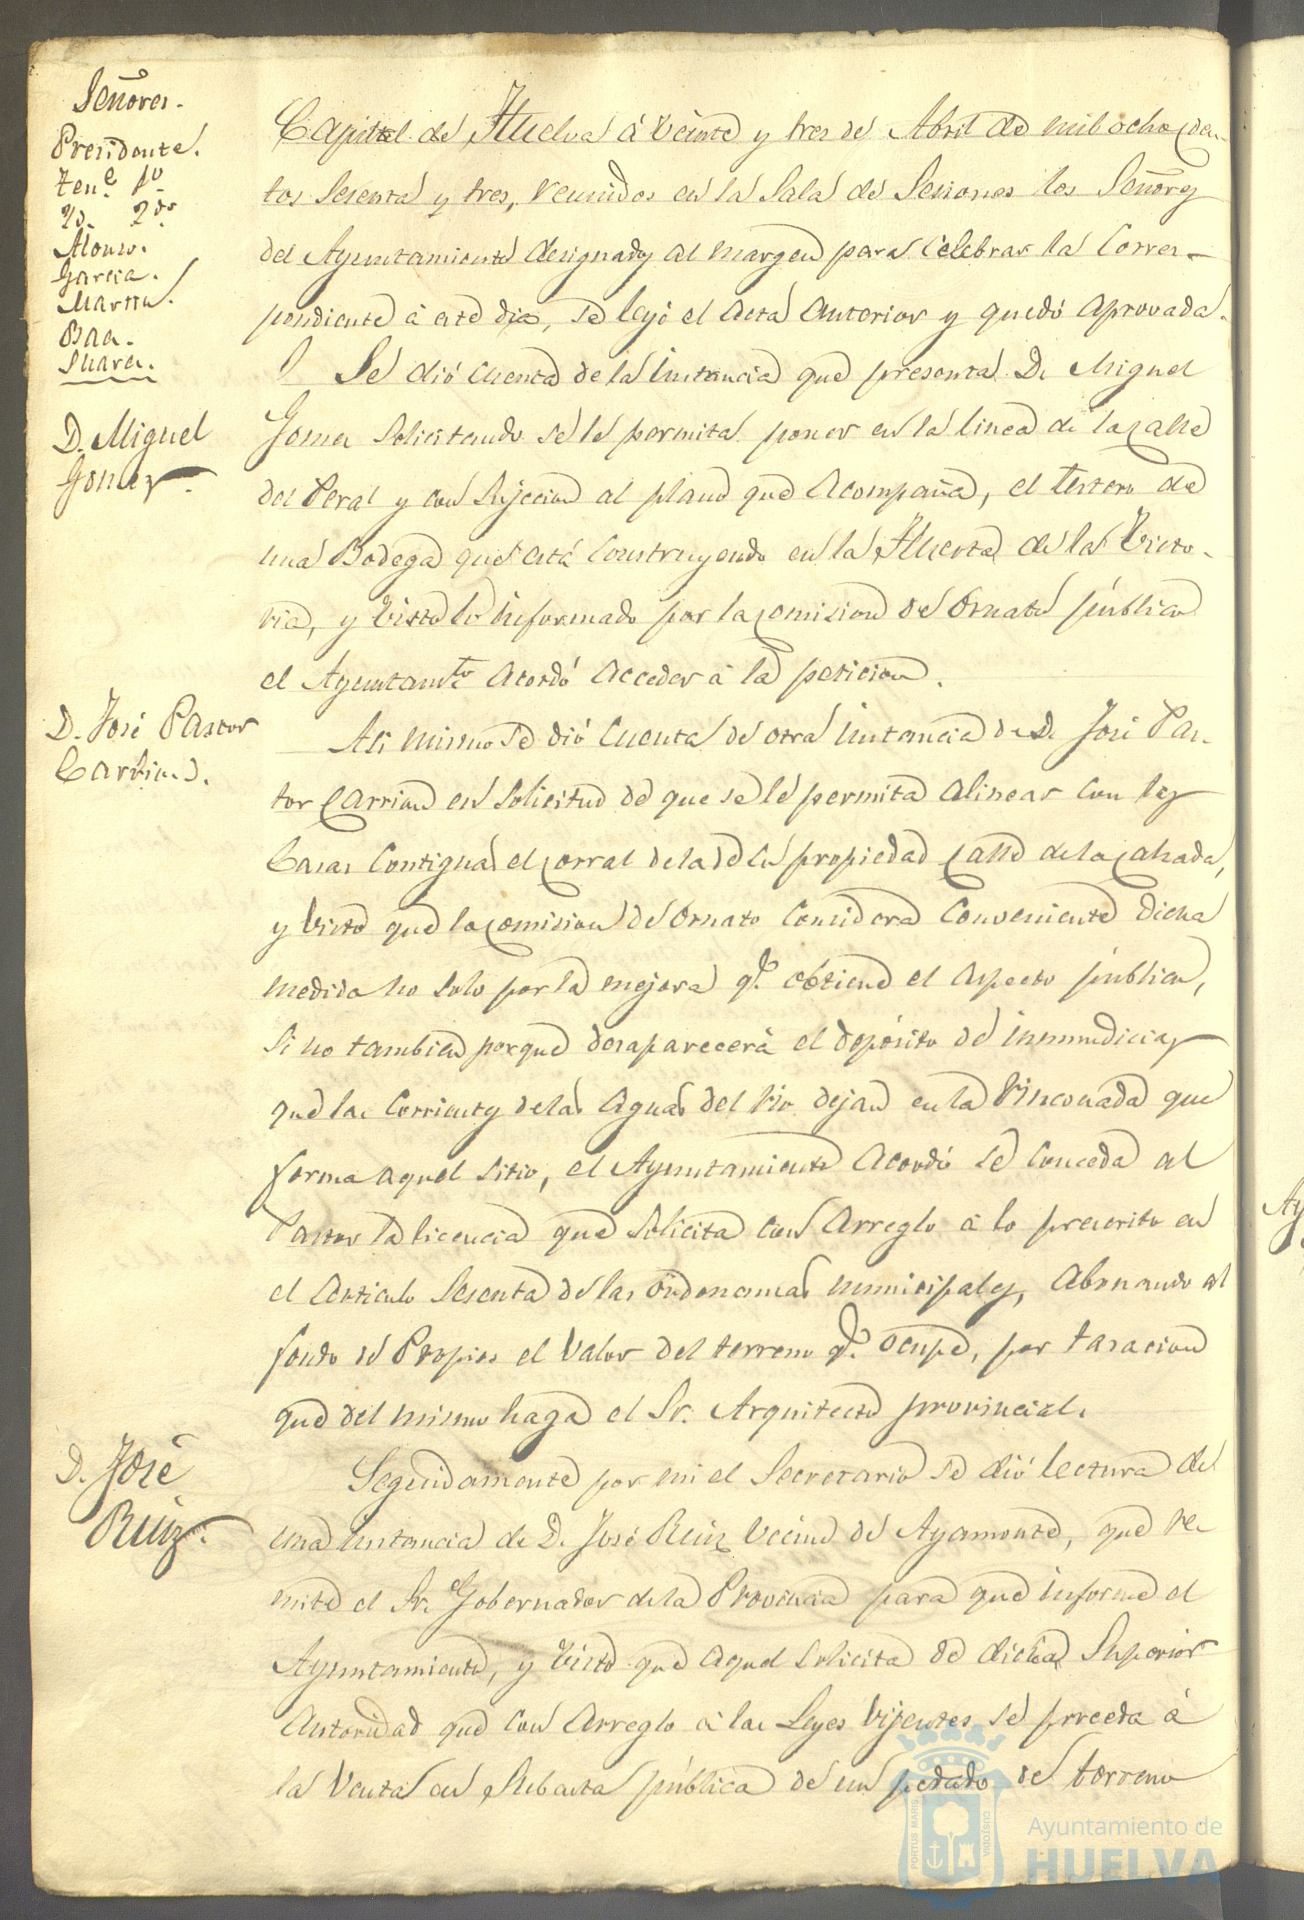 Señores.
Presidente.
Tene. 1º
Yd. 2do.
Alonso.
Garcia.
Martin.
Baa.
Suarez.
Capital de Huelva á veinte y tres de Abril de mil ochocien-
tos sesenta y tres, reunidos en la Sala de Sesiones los Señores
del Ayuntamiento designados al margen para celebrar la corres-
pondiente á este dia, se leyó el acta anterior y quedó aprovada.
Se dió cuenta de la instancia que presenta D. Miguel
D. Miguel
Gomez.
Gomez solicitando se le permita poner en la linea de la calle
del Peral y con sujecion al plano que acompaña, el testero de
una Bodega que está construyendo en la Huerta de la Victo-
ria, y visto lo informado por la comision de ornato público
el Ayuntamto. acordó acceder á la peticion.
D. José Pastor
Carrion.
Asi mismo se dió cuenta de otra instancia de D. José Pas-
tor Carrion en solicitud de que se le permita alinear con las
casas contiguas el corral de la de su propiedad calle de la calzada,
y visto que la comision de ornato considera conveniente dicha
medida no solo por la mejora q.e obtiene el aspecto público,
si no tambien porque desaparecerá el depósito de inmundicias
que las corrientes de las aguas del rio dejan en la rinconada que
forma aquel sitio, el Ayuntamiento acordó se conceda al
Pastor la licencia que solicita con arreglo á lo prescrito en
el articulo sesenta de las ordenanzas municipales, abonando al
fondo de Propios el valor del terreno q.e ocupe, por tasacion
que del mismo haga el Sr. Arquitecto provincial.
D. José
Ruiz.
Seguidamente por mi el Secretario se dió lectura de
una instancia de D. José Ruiz vecino de Ayamonte, que re-
mite el Sr. Gobernador de la Provincia para que informe el
Ayuntamiento, y visto que aquel solicita de dicha Superior
Autoridad que con arreglo á las Leyes vijentes se proceda á
la venta en subasta pública de un pedazo de terreno
PORTUS MARIS
CUSTODIA
Ayuntamiento de
HUELVA
Ay